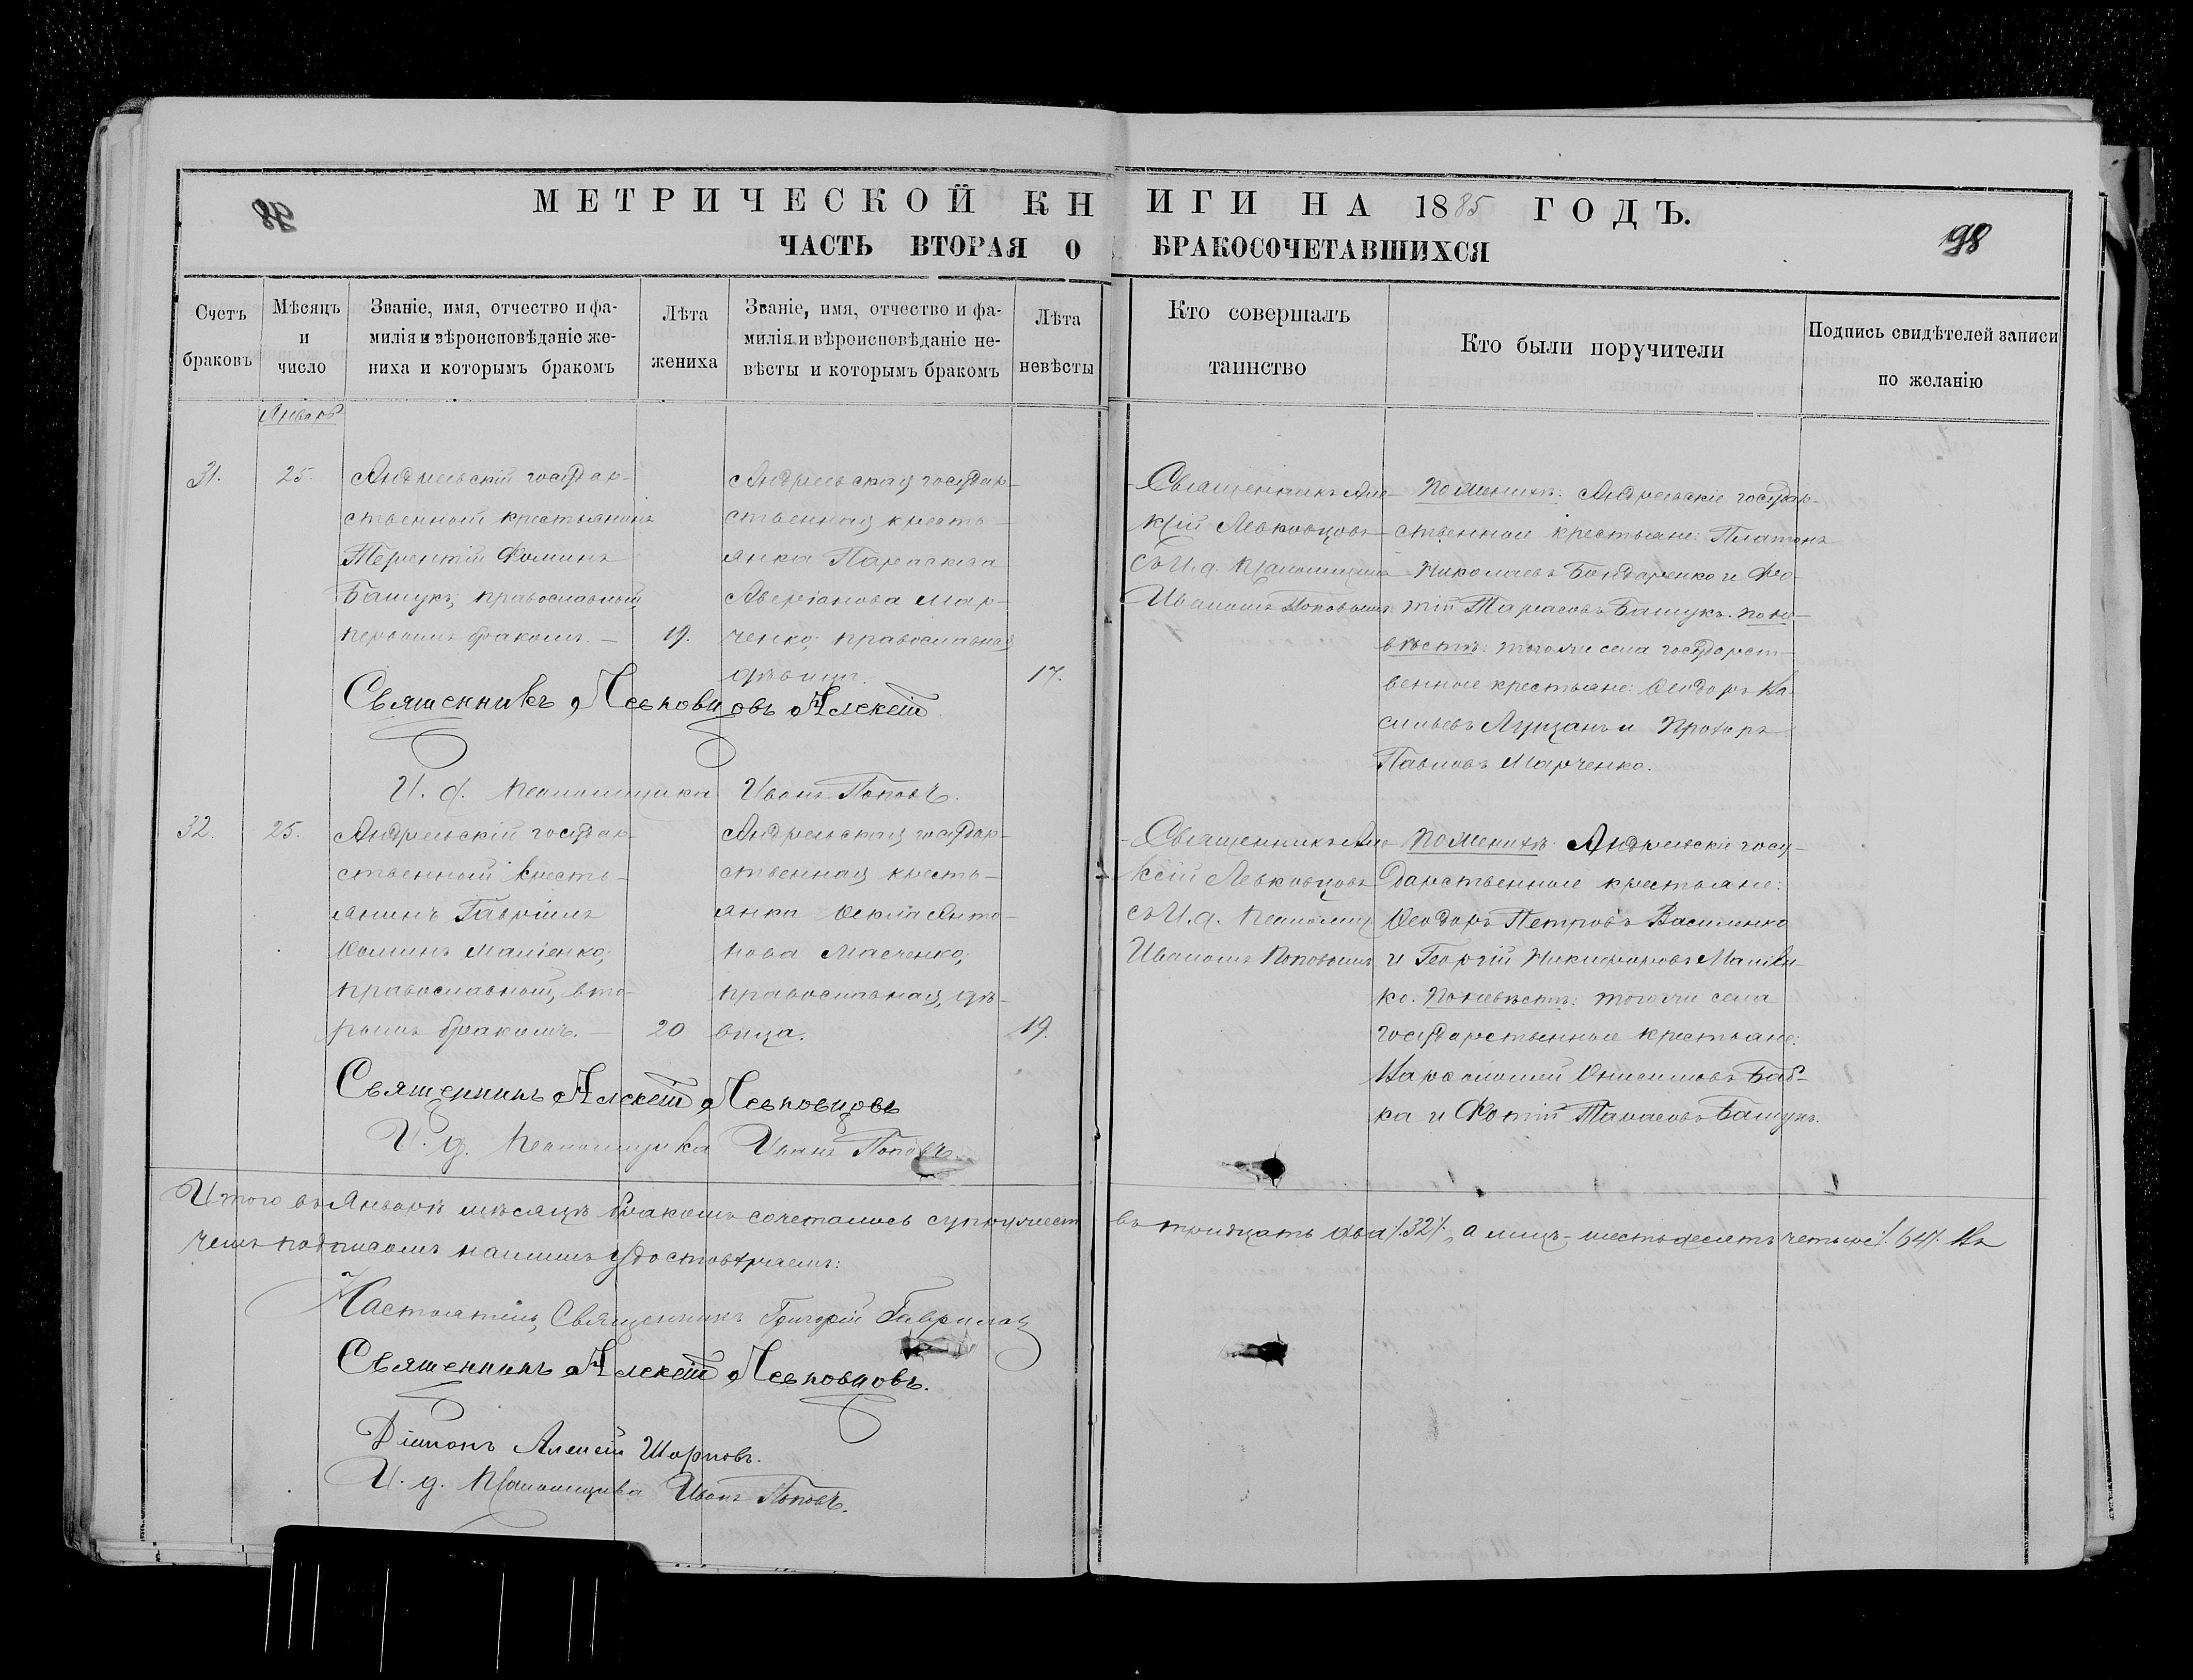 МЕТРИЧЕСКОЙ КНИГИ НА 1885 ГОДЪ.
98
ЧАСТЬ ВТОРАЯ О БРАКОСОЧЕТАВШИХСЯ
98
Счетъ
браковъ
Мѣсяцъ
и
число
Званіе, имя, отчество и фа-
милія и вѣроисповѣданіе же-
ниха и которымъ бракомъ
Лѣта
жениха
Званіе, имя, отчество и фа-
милія и вѣроисповѣданіе не-
вѣсты и которымъ бракомъ
Лѣта
невѣсты
Кто совершалъ
таинство
Кто были поручители
Подпись свидѣтелей записи
по желанію
Январь
31.
25.
Андреевскій государ-
ственный крестьянинъ
Терентій Фоминъ
Башукъ, православный
первымъ бракомъ. —
19.
Андреевская государ-
ственная кресть-
янка Параскева
Аверіанова Мар-
ченко, православная
дѣвица.
17.
Священникъ Але-
ксій Левковцовъ
съ И. д. Псаломщика
Иваномъ Поповымъ
По женихѣ: Андреевскіе государ-
ственные крестьяне: Платонъ
Николаевъ Бондаренко и Фо-
тій Тарасовъ Башукъ. По не-
вѣстѣ: того же села государст-
венные крестьяне: Ѳеодоръ Ва-
сильевъ Луцанъ и Прохоръ
Павловъ Марченко.
Священникъ Левковцовъ Алексій
И. д. Псаломщика Иванъ Поповъ.
32.
25.
Андреевскій государ-
ственный кресть-
янинъ Гавріилъ
Ѳоминъ
православный, вто-
рымъ бракомъ. —
20
Андреевская государ-
ственная кресть-
янка Ѳекла Анто-
нова Масченко,
православная, дѣ-
вица.
19.
Священникъ Але-
ксій Левковцовъ
съ И. д. Псаломщ.
Иваномъ Поповымъ
По женихѣ: Андреевскіе госу-
дарственные крестьяне:
Ѳеодоръ Петровъ Василенко
и Георгій Никифоровъ
ко. По невѣстѣ: того же села
государственные крестьяне:
Варѳоломей Онисимовъ Баб-
ка и Фотій Тарасовъ Башукъ.
Священникъ Алексій Левковцовъ
И. д. Псаломщика Иванъ Поповъ.
Итого въ Январѣ мѣсяцѣ бракомъ сочеталось супружествъ тридцать два /.32/., а лицъ - шестьдесятъ четыре /. 64/. Въ
чемъ подписомъ нашимъ удостовѣряемъ:
Настоятель, Священникъ Григорій
Священникъ Алексій Левковцовъ.
Діаконъ Алексій
И. д. Псаломщика Иванъ Поповъ.